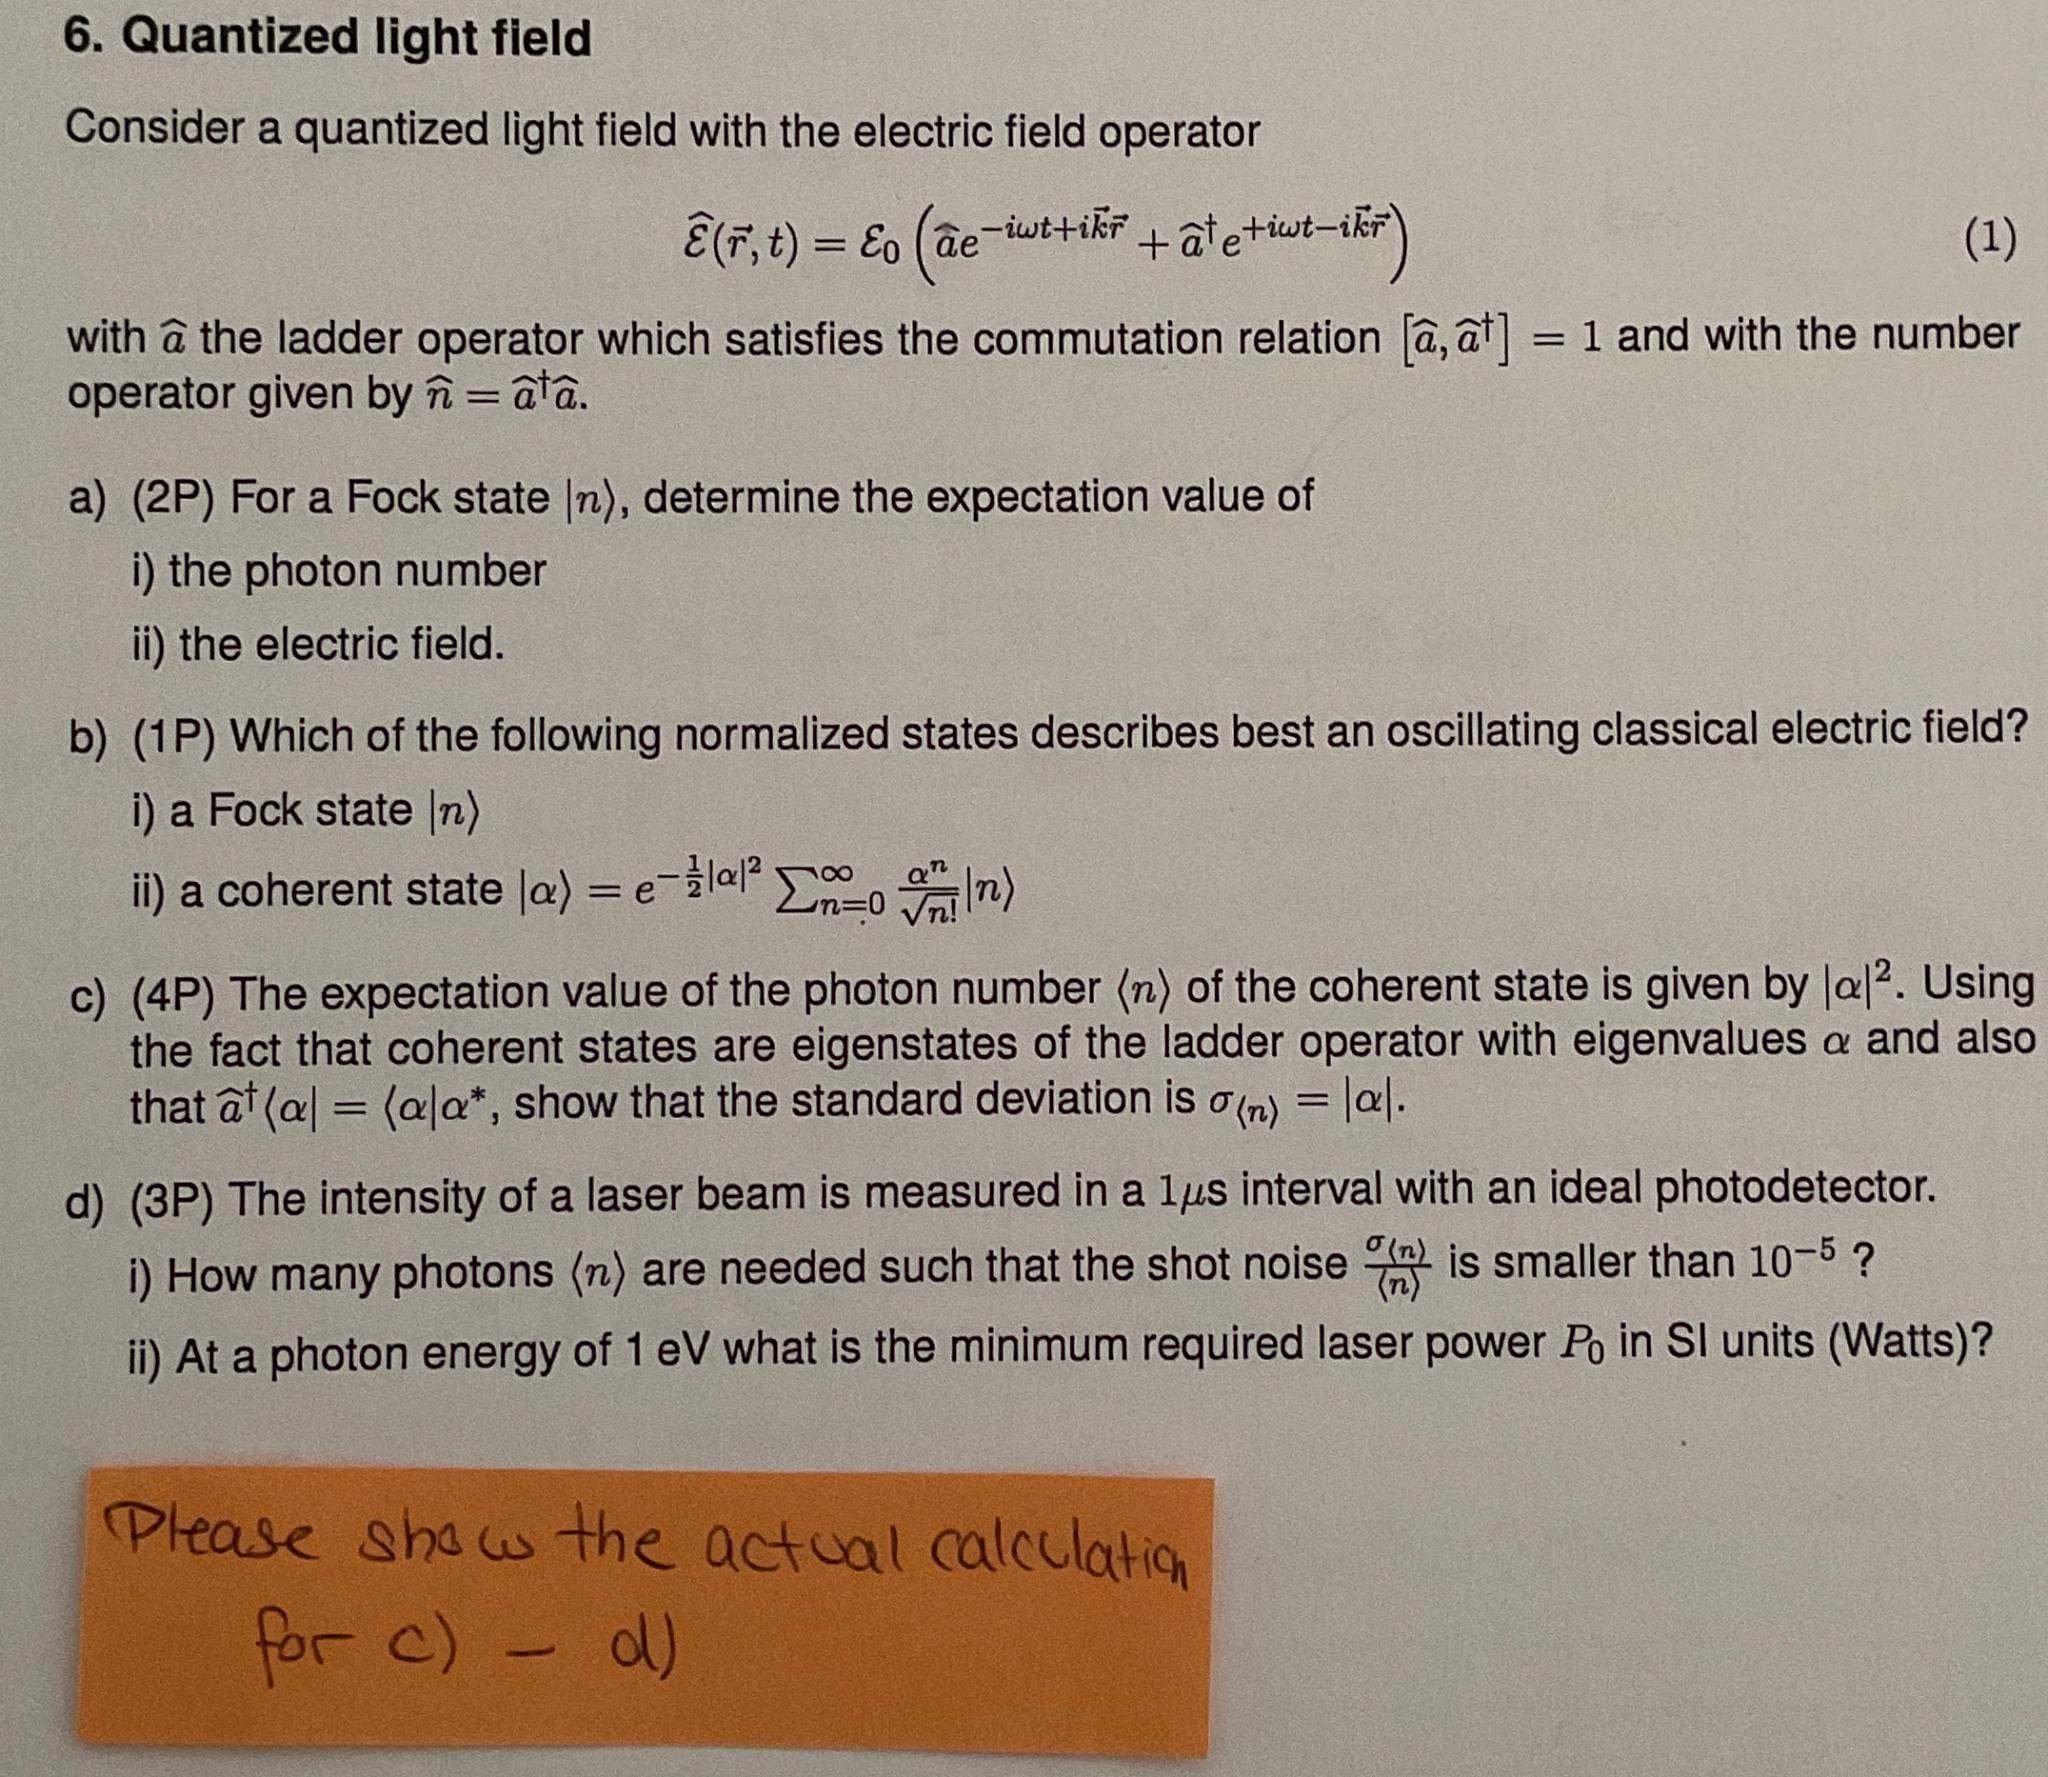 6. Quantized light field
Consider a quantized light field with the electric field operator
ℰ̂(r⃗, t) = ℰ₀ (âe^{−iωt+ik⃗r⃗} + â†e^{+iωt−ik⃗r⃗}) (1)
with â the ladder operator which satisfies the commutation relation [â, â†] = 1 and with the number
operator given by n̂ = â†â.
a) (2P) For a Fock state |n⟩, determine the expectation value of
i) the photon number
ii) the electric field.
b) (1P) Which of the following normalized states describes best an oscillating classical electric field?
i) a Fock state |n⟩
ii) a coherent state |α⟩ = e^{−½|α|²} ∑_{n=0}^{∞} αⁿ/√n! |n⟩
c) (4P) The expectation value of the photon number ⟨n⟩ of the coherent state is given by |α|². Using
the fact that coherent states are eigenstates of the ladder operator with eigenvalues α and also
that â†⟨α| = ⟨α|α*, show that the standard deviation is σ_{⟨n⟩} = |α|.
d) (3P) The intensity of a laser beam is measured in a 1μs interval with an ideal photodetector.
i) How many photons ⟨n⟩ are needed such that the shot noise σ_{⟨n⟩}/⟨n⟩ is smaller than 10⁻⁵ ?
ii) At a photon energy of 1 eV what is the minimum required laser power P₀ in SI units (Watts)?
Please show the actual calculation
for c) - d)